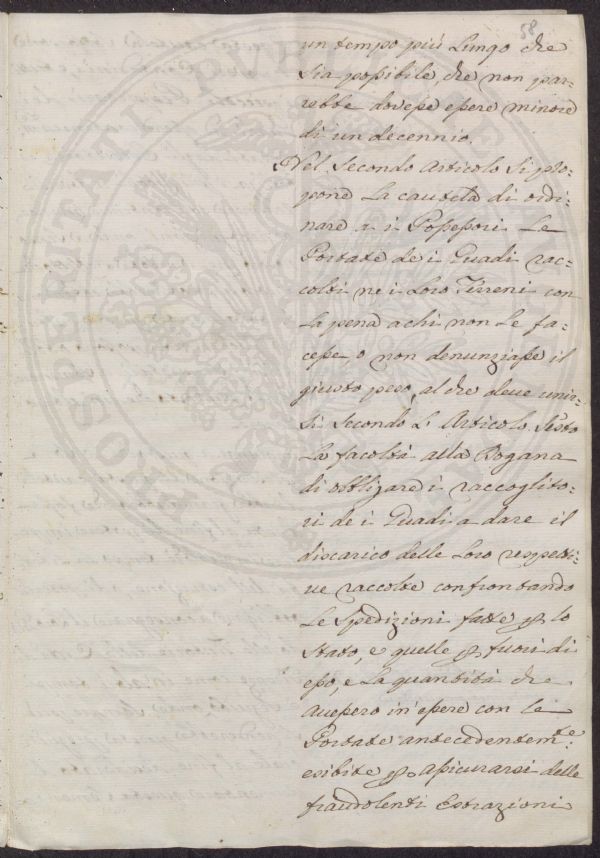 58
un tempo più lungo che
sia possibile, che non par=
rebbe dovesse essere minore
di un decennio.
Nel secondo Articolo si pro=
pone la cautela di ordi=
nare a i Possessori le
Portate de i Guadi rac=
colti ne i loro Terreni con
la pena a chi non le fa=
cesse o non denunziasse il
giusto peso, al che deve unir=
si secondo l'Articolo sesto
la facoltà alla Dogana
di obbligare i raccoglito=
ri de i Guadi a dare il
discarico delle loro respetti=
ve raccolte confrontando
le spedizioni fatte p lo
stato, e quelle p fuori di
esso, e la quantità che
avessero in essere con le
Portate antecedentemte
esibite p assicurarsi delle
fraudolenti Estrazioni
PROSPERITAT PUBLICAE